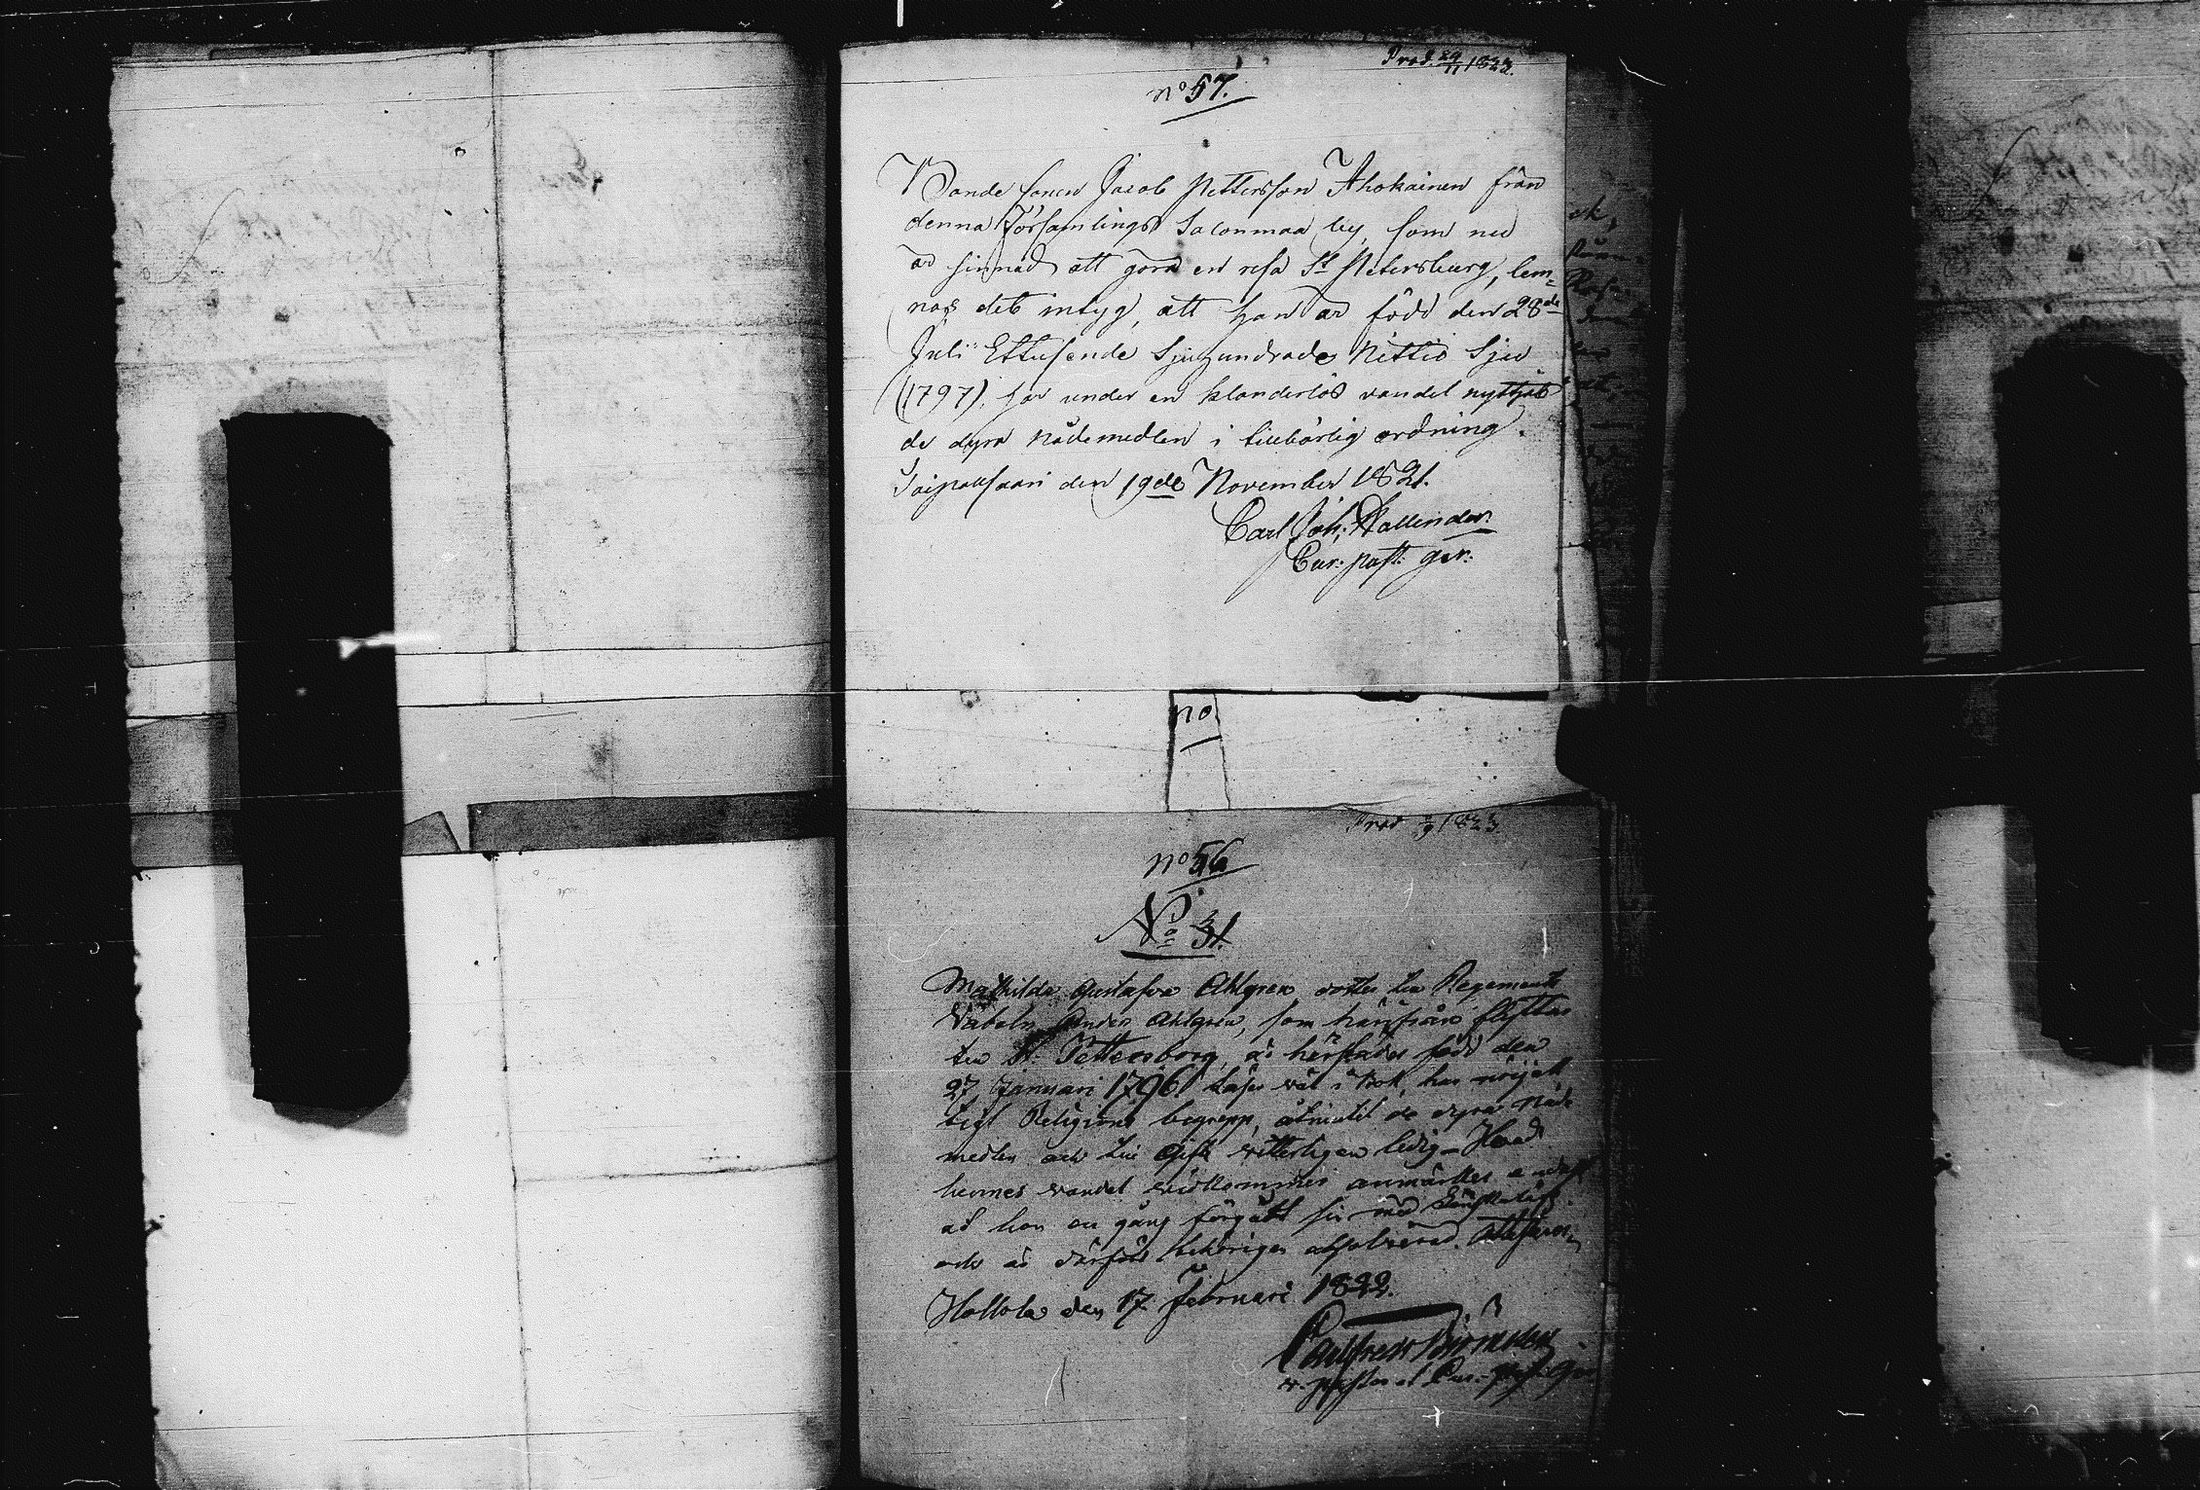 Prod. 29/11 1822.
no 57.
Bonde sonen Jacob Pettersson Ahokainen från
denna Församlings Salonmaa by, som nu
är sinnad att göra en resa St Petersburg, lem=
nas det intyg, att han är född den 28de
Julii Ettusende Sjuhundrade Nittio Sju
(1797), har under en klanderlös vandel nyttjat
de dyra nådemedlen i tillbörlig ordning.
Taipalsaari den 19de November 1821.
Carl Joh: Wallinder.
Cur: past: gier:
no
Prod 1823
no 56
No 31.
Mathilda Gustafva Ahlgren dotter till Regements
Anders Ahlgren, som härifrån flyttar
till St: Pettersborg, är härstädes född den
27 Januari 1796 läser väl i Bok, har nöjak
tigt Religions begrepp, åtniutit de dyra Nåde
medlen och till Gifte vitterligen ledig - Hvad
hennes vandel vidkommer anmärkes endast
at hon en gång förgått sig med Lönskaläge
och är därföre behörigen absolverad. Attesterar
Hollola den 17 Februari 1822.
v. pastor et Cur. past. gr